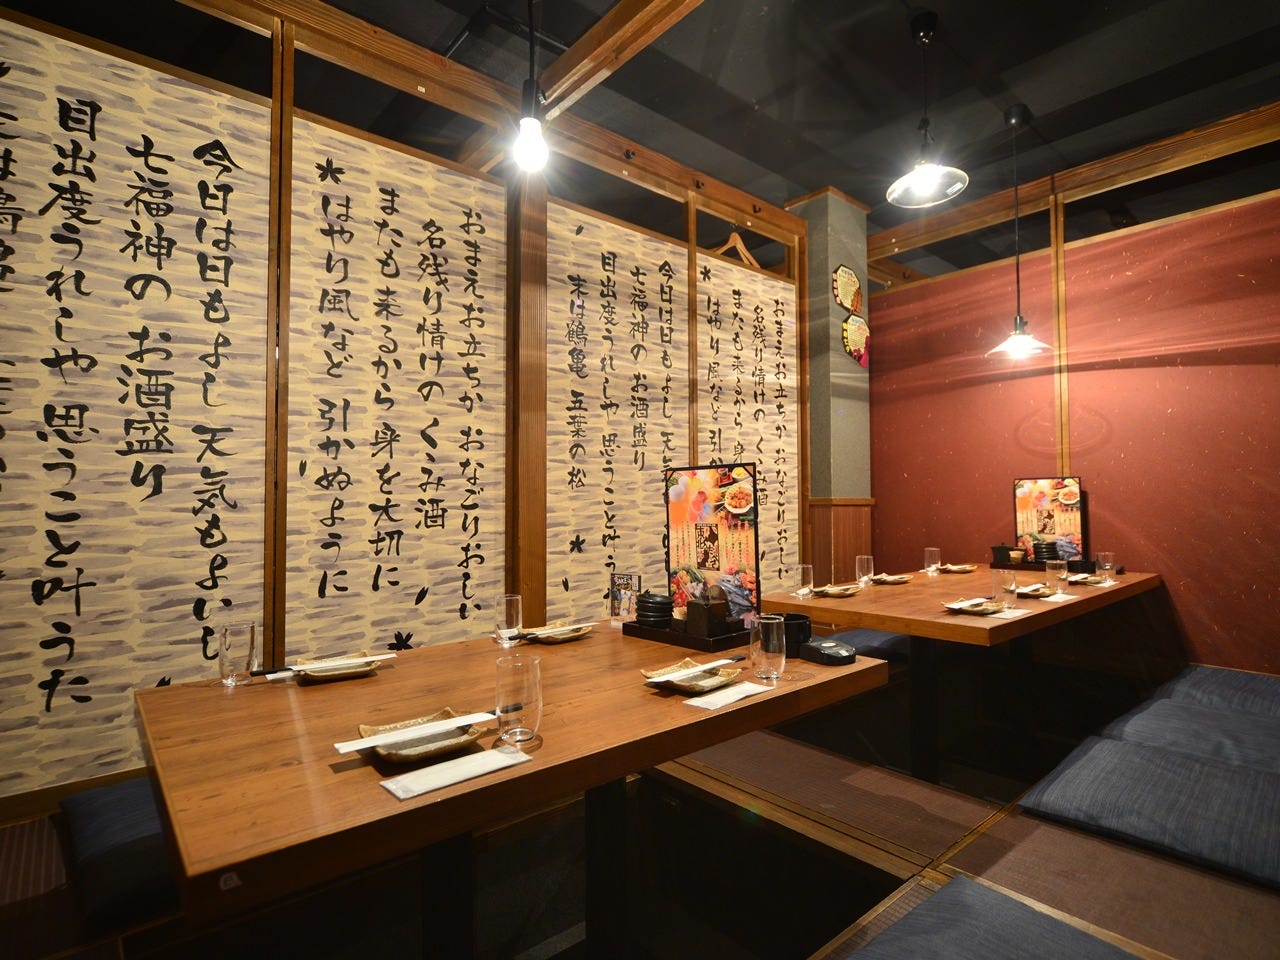 おまえお立ちか おなごりおしい
名残り情けの くみ酒
またも来るから 身を大切に
はやり風など 引かぬように
今日は日もよし 天気もよいし
七福神のお酒盛り
目出度うれしや 思うこと叶うた
末は鶴亀
おまえお立ちか おなごりおしい
名残り情けの くみ酒
またも来るから 身
はやり風など 引か
今日は日もよし 天気
七福神のお酒盛り
目出度うれしや 思うこと叶う
末は鶴亀 五葉の松
SAKE